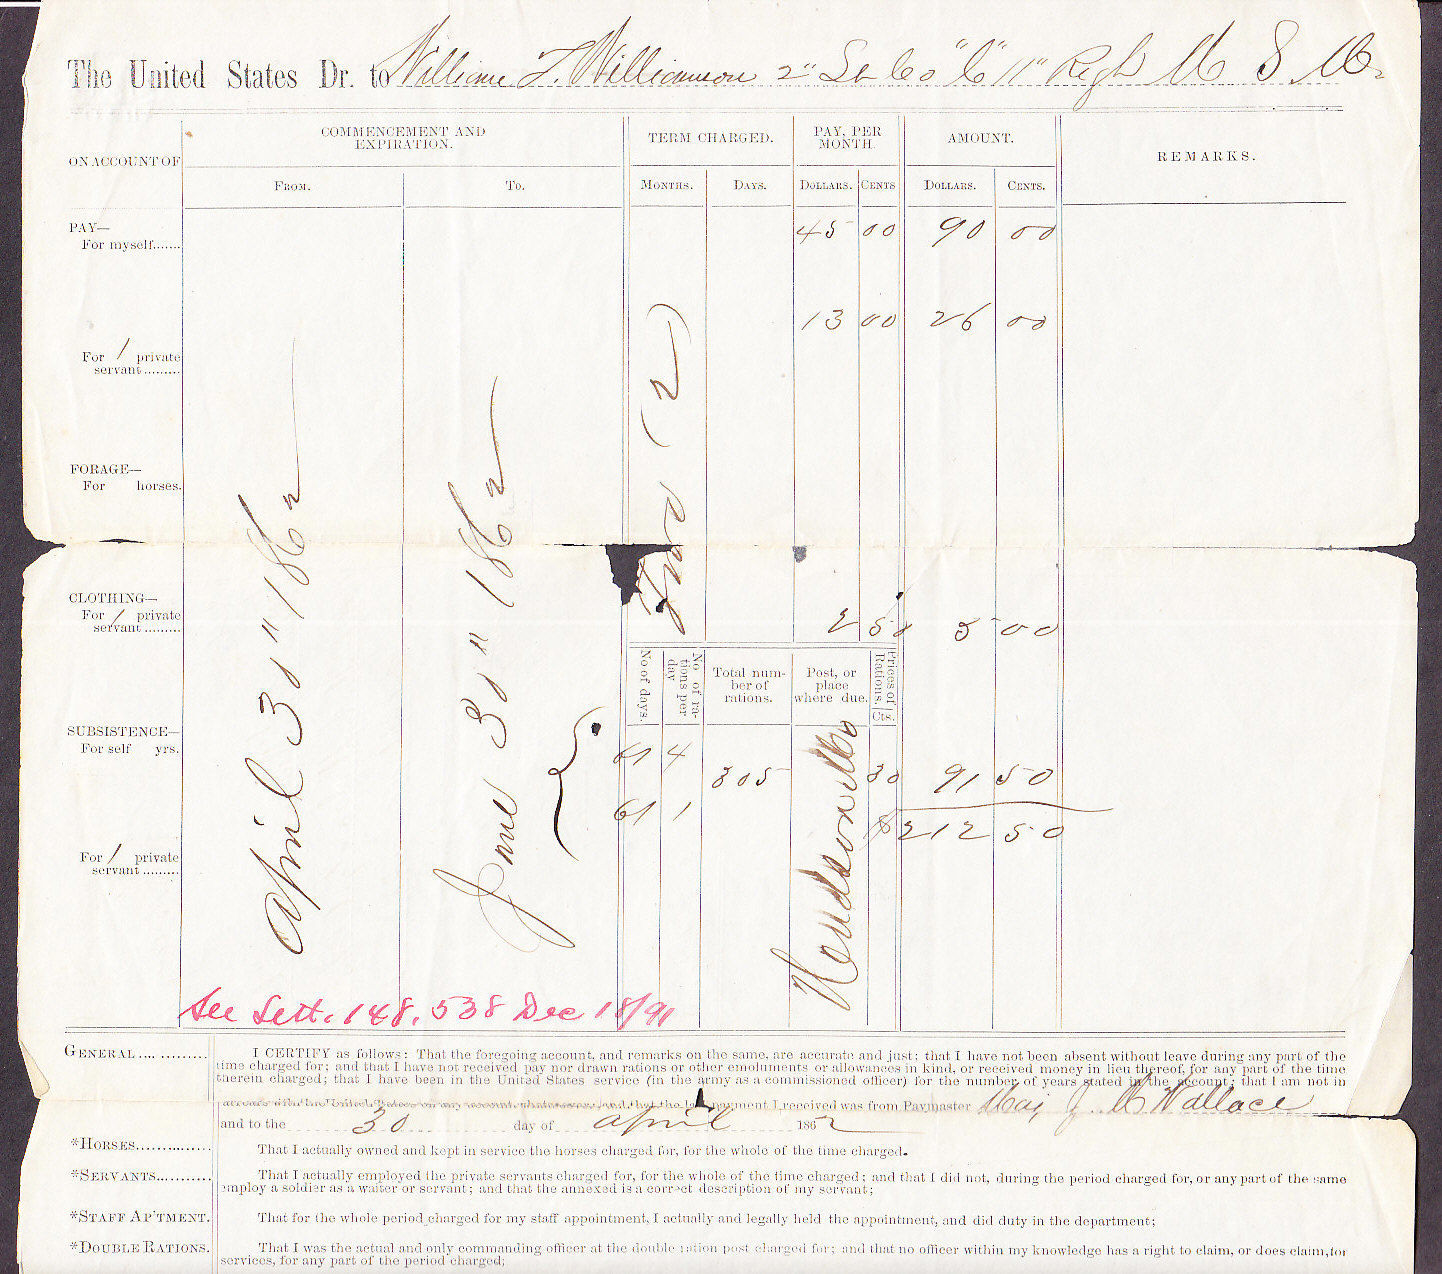 The United States Dr. to William T. Williamson 2" Lt Co "C" 11" Regt M S M.
ON ACCOUNT OF
COMMENCEMENT AND
EXPIRATION.
TERM CHARGED.
PAY, PER
MONTH.
AMOUNT.
REMARKS.
FROM.
TO.
MONTHS.
DAYS.
DOLLARS.
CENTS
DOLLARS.
CENTS.
PAY—
For myself.......
45 00 90 00
13 00 26 00
For 1 private
servant.........
FORAGE—
For horses.
April 30" 1862
June 30" 1862
Two (2)
CLOTHING—
For 1 private
servant.........
2 50 5 00
No of days.
No. of ra-
tions per
day
Total num-
ber of
rations.
Post, or
place
where due.
Prices of
Rations.
Cts.
SUBSISTENCE—
For self yrs.
61 4
305
30 91 50
61 1
$ 212 50
For 1 private
servant.........
See Sett. 148,538 Dec 18/91
GENERAL .... ......... I CERTIFY as follows: That the foregoing account, and remarks on the same, are accurate and just; that I have not been absent without leave during any part of the
time charged for; and that I have not received pay nor drawn rations or other emoluments or allowances in kind, or received money in lieu thereof, for any part of the time
therein charged; that I have been in the United States service (in the army as a commissioned officer) for the number of years stated in the account; that I am not in
arrears with the United States on any account whatsoever; and that the last payment I received was from Paymaster Maj J. M Wallace
and to the 30 day of April 1862
*HORSES............... That I actually owned and kept in service the horses charged for, for the whole of the time charged.
*SERVANTS........... That I actually employed the private servants charged for, for the whole of the time charged; and that I did not, during the period charged for, or any part of the same
employ a soldier as a waiter or servant; and that the annexed is a correct description of my servant;
*STAFF AP'TMENT. That for the whole period charged for my staff appointment, I actually and legally held the appointment, and did duty in the department;
*DOUBLE RATIONS. That I was the actual and only commanding officer at the double ration post charged for; and that no officer within my knowledge has a right to claim, or does claim, for
services, for any part of the period charged;